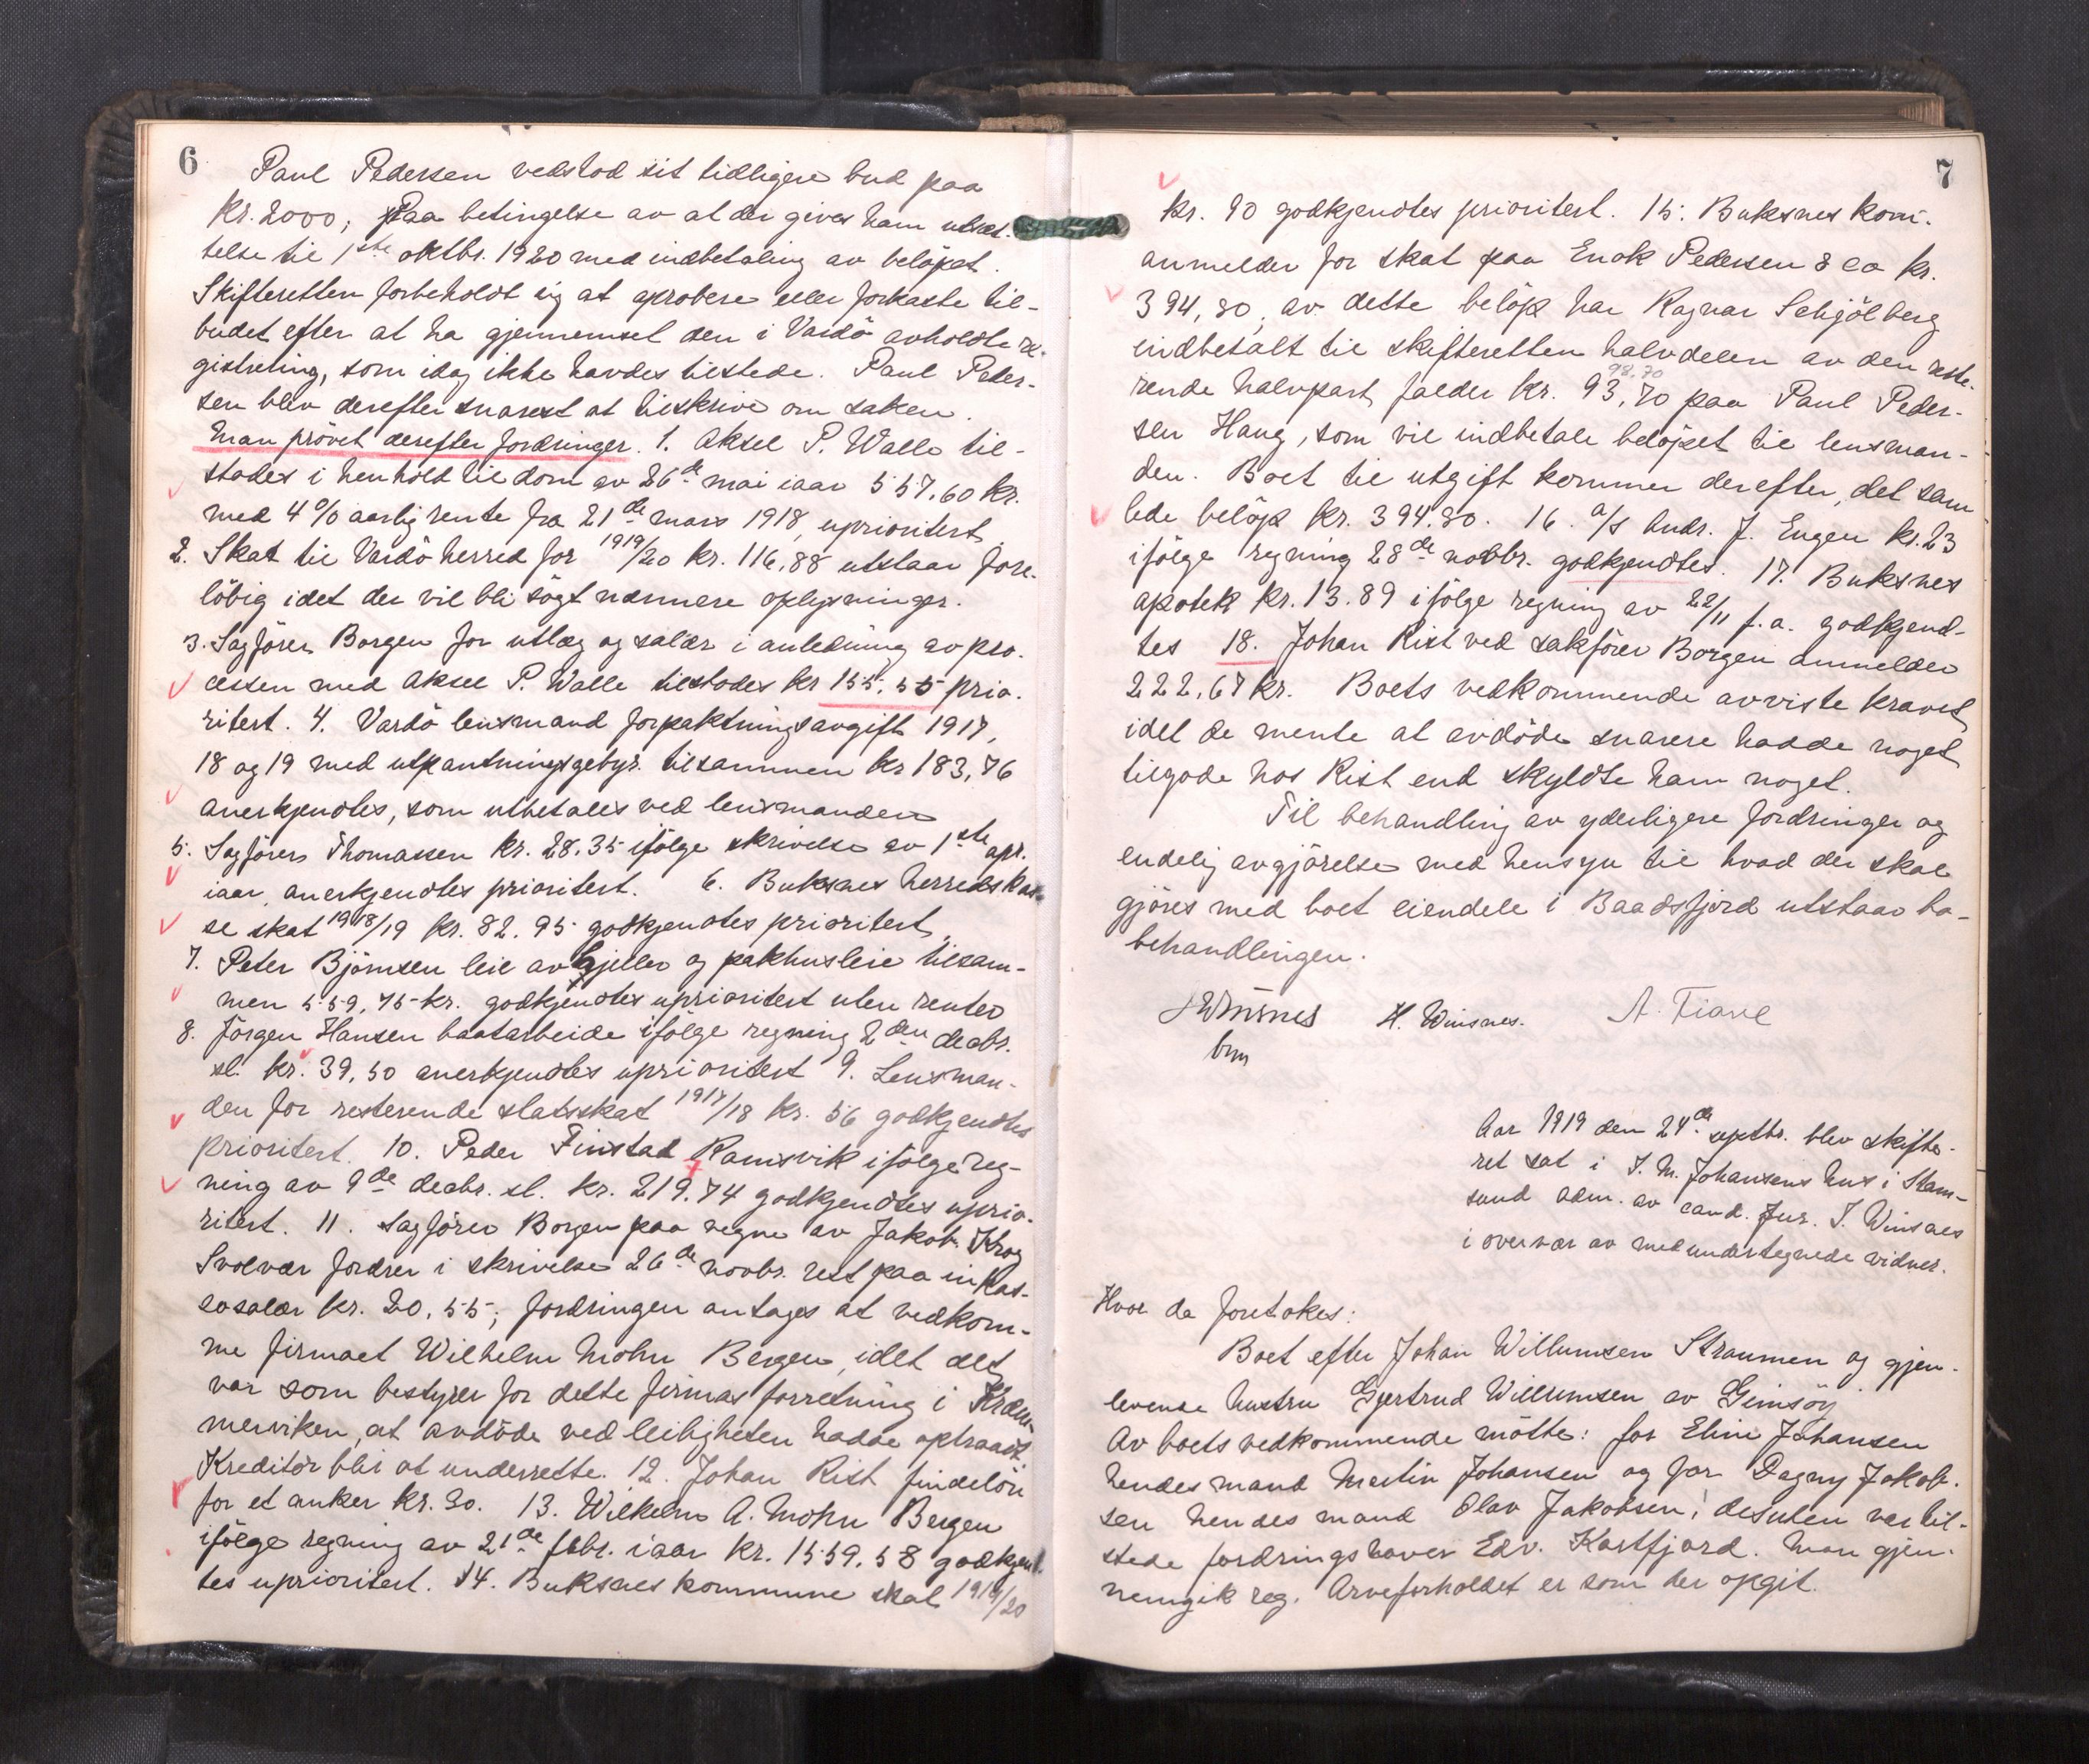 6
Paul Pedersen vedstod sit tidligere bud paa
kr. 2000; paa betingelse av at der gives ham utsæt-
telse til 1ste oktbr. 1920 med indbetaling av beløpet.
Skifteretten forbeholdt sig at aprobere eller forkaste til-
budet efter at ha gjennemset den i Vardö avholdte re-
gistrering, som idag ikke havdes tilstede. Paul Peder-
sen blev derefter snarest at tilskrive om saken.
Man prövet derefter fordringer. 1. Aksel P. Walle til-
stodes i henhold til dom av 26de mai iaar 557.60 kr.
med 4% aarlig rente fra 21de mars 1918, uprioritert
2. Skat til Vardö herred for 1919/20 kr. 116,88 utstaar fore-
löbig idet der vil bli sögt nærmere oplysninger.
3. Sagförer Borgen for utlæg og salær i anledning av pro-
cessen med Aksel P. Walle tilstodes kr 155,55 prio-
ritert. 4. Vardö lensmand forpaktningsavgift 1917,
18 og 19 med utpantningsgebyr tilsammen kr 183,76
anerkjendtes, som utbetales ved lensmanden
5. Sagförer Thomassen kr. 28.35 ifölge skrivelse av 1ste apr.
iaar, anerkjendtes prioritert. 6. Buksnes herredskas-
se skat 1918/19 kr. 82.95 godkjendtes prioritert.
7. Peter Björnsen leie av gjeller og pakhusleie tilsam-
men 559,75 kr. godkjendtes uprioritert uten renter
8. Jörgen Hansen baatarbeide ifölge regning 2den decbr.
sl. kr. 39,50 anerkjendtes uprioritert 9. Lensman-
den for resterende statsskat 1917/18 kr. 56 godkjendtes
prioritert. 10. Peder Finstad Ramsvik ifölge reg-
ning av 9de decbr. sl. kr. 219.74 godkjendtes uprio-
ritert. 11. Sagförer Borgen paa vegne av Jakob Krog
Svolvær fordrer i skrivelse 26de novbr. rest paa inkas-
sosalær kr. 20,55; fordringen antages at vedkom-
me firmaet Wilhelm Mohn Bergen, idet det
var som bestyrer for dette firmas forretning i
merviken, at avdöde ved leiligheten hadde optraadt.
Kreditor blir at underrette. 12. Johan Rist findelön
for et anker kr. 20. 13. Wilhelm A. Mohn Bergen
ifölge regning av 21de febr. iaar kr. 1559.58 godkjend-
tes uprioritert. 14. Buksnes kommune skat 1919/20
7
kr. 90 godkjendtes prioritert. 15. Buksnes kom.
anmelder for skat paa Enok Pedersen & co kr.
394,80, av dette belöp har Ragnar Schjölberg
indbetalt til skifteretten halvdelen av den reste-
98.70
rende halvpart falder kr. 93,70 paa Paul Peder-
sen Haug, som vil indbetale belöpet til lensman-
den. Boet til utgift kommer derefter det sam
lede belöp kr. 394.80. 16. a/s Andr. J. Engen kr. 23
ifölge regning 28de novbr. godkjendtes. 17. Buksnes
apotek kr. 13.89 ifölge regning av 22/11 f.a. godkjend-
tes 18. Johan Rist ved sakförer Borgen anmelder
222,67 kr. Boets vedkommende avviste kravet
idet de mente at avdöde snarere hadde noget
tilgode hos Rist end skyldte ham noget.
Til behandling av yderligere fordringer og
endelig avgjörelse med hensyn til hvad der skal
gjöres med boet eiendele i Baadsfjord utstaar bo-
behandlingen.
JWinsnes H. Winsnes. A. Fiane
bm
Aar 1919 den 24de septbr. blev skifte-
ret sat i J. M. Johansens hus i Stam-
sund adm. av cand. jur. J. Winsnes
i overvær av medundertegnede vidner.
Hvor da foretokes:
Boet efter Johan Willumsen Straumen og gjen-
levende hustru Gjertrud Willumsen av Gimsöy
Av boets vedkommende mötte: for Eline Johansen
hendes mand Martin Johansen og for Dagny Jakob-
sen hendes mand Olav Jakobsen; desuten var til-
stede fordringshaver Edv. Kartfjord. Man gjen-
nemgik reg. Arveforholdet er som der opgit.